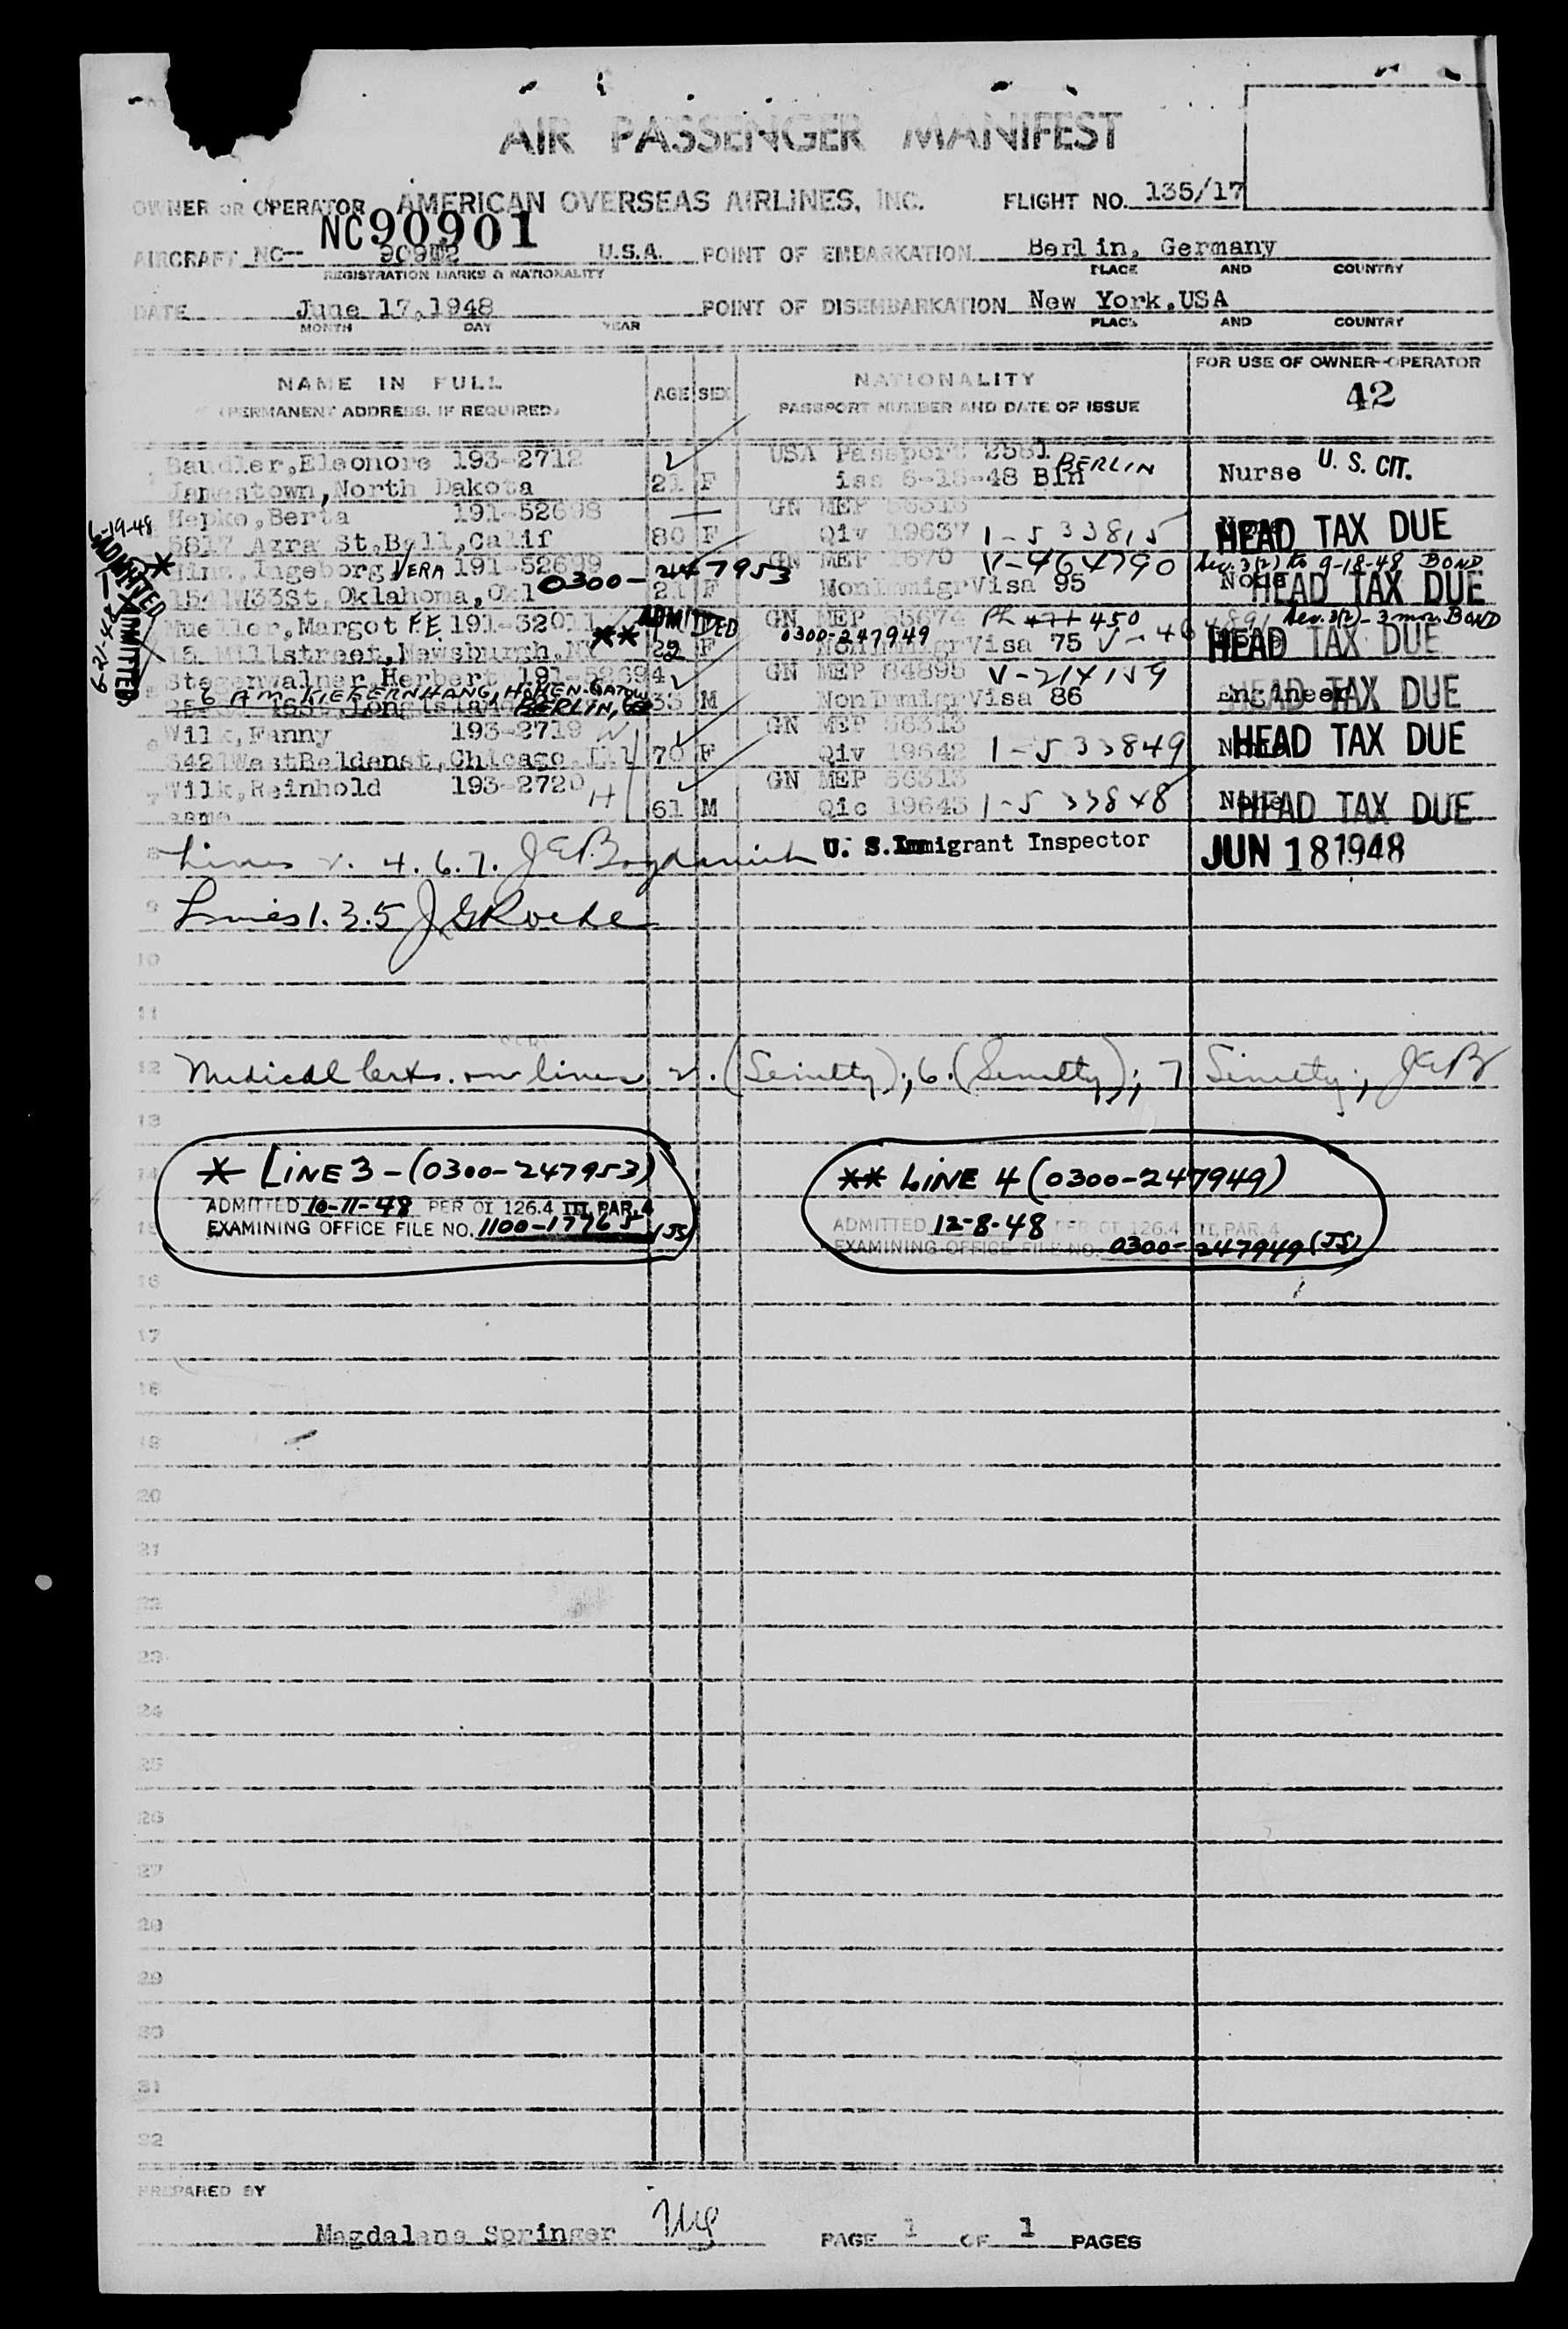 AIR PASSENGER MANIFEST
OWNER OR OPERATOR AMERICAN OVERSEAS AIRLINES, INC. FLIGHT NO. 135/17
NC90901
AIRCRAFT NC-- U.S.A. POINT OF EMBARKATION Berlin, Germany
REGISTRATION MARKS & NATIONALITY PLACE AND COUNTRY
DATE June 17,1948 POINT OF DISEMBARKATION New York,USA
MONTH DAY YEAR PLACE AND COUNTRY
NAME IN FULL AGE SEX NATIONALITY FOR USE OF OWNER-OPERATOR
(PERMANENT ADDRESS, IF REQUIRED) PASSPORT NUMBER AND DATE OF ISSUE 42
Baudler,Eleonore 193-2712 USA Passport 2581 BERLIN
Jamestown,North Dakota 21 F iss 6-16-48 Bln Nurse U. S. CIT.
6-19-48 Hepke,Berta 191-52698 GN MEP 56316
5817 Azra St,Bell,Calif 80 F Qiv 19637 1-533815 HEAD TAX DUE
ADMITTED * Hinz,Ingeborg VERA 191-52699 0300-247953 GN MEP 1670 V-464790 Sec. 3(2) to 9-18-48 BOND
1541W33St, Oklahoma,Okl 21 F NonImmigrVisa 95 None HEAD TAX DUE
Mueller,Margot F.E. 191-32011 ADMITTED GN MEP 450 Sec. 3(2)-3 mos. BOND
** 15 Millstreet,Newsburgh,NY F 0300-247949 NonImmigrVisa 75 HEAD TAX DUE
6-21-48 ADMITTED
Stegenwalner,Herbert 191-52694 GN MEP 84895 V-214159
6 AM KIEFERNHANG, HOHEN-GATOW BERLIN, 33 M NonImmigrVisa 86 Engineer HEAD TAX DUE
Wilk,Fanny 193-2719 GN MEP 56313
5421WestBeldenst,Chicago,Ill 70 F Qiv 19642 1-533849 None HEAD TAX DUE
Wilk,Reinhold 193-2720 H GN MEP 56313
same 61 M Qic 19645 1-533848 None HEAD TAX DUE
8 Lines 2. 4. 6. 7. U. S. Immigrant Inspector JUN 18 1948
9 Lines 1. 3. 5 J G Roche
10
11
12 Medical Certs. on lines 2. (Senility); 6. (Senility); 7 Senility; JEB
13
14 * LINE 3-(0300-247953) ** LINE 4 (0300-247949)
ADMITTED 10-11-48 PER OI 126.4 III, PAR. 4 ADMITTED 12-8-48 PER OI 126.4 III, PAR. 4
15 EXAMINING OFFICE FILE NO. 1100-17765 (JS) EXAMINING OFFICE FILE NO. 0300-247949 (JS)
16
17
18
19
20
21
22
23
24
25
26
27
28
29
30
31
32
PREPARED BY
Magdalena Springer PAGE 1 OF 1 PAGES